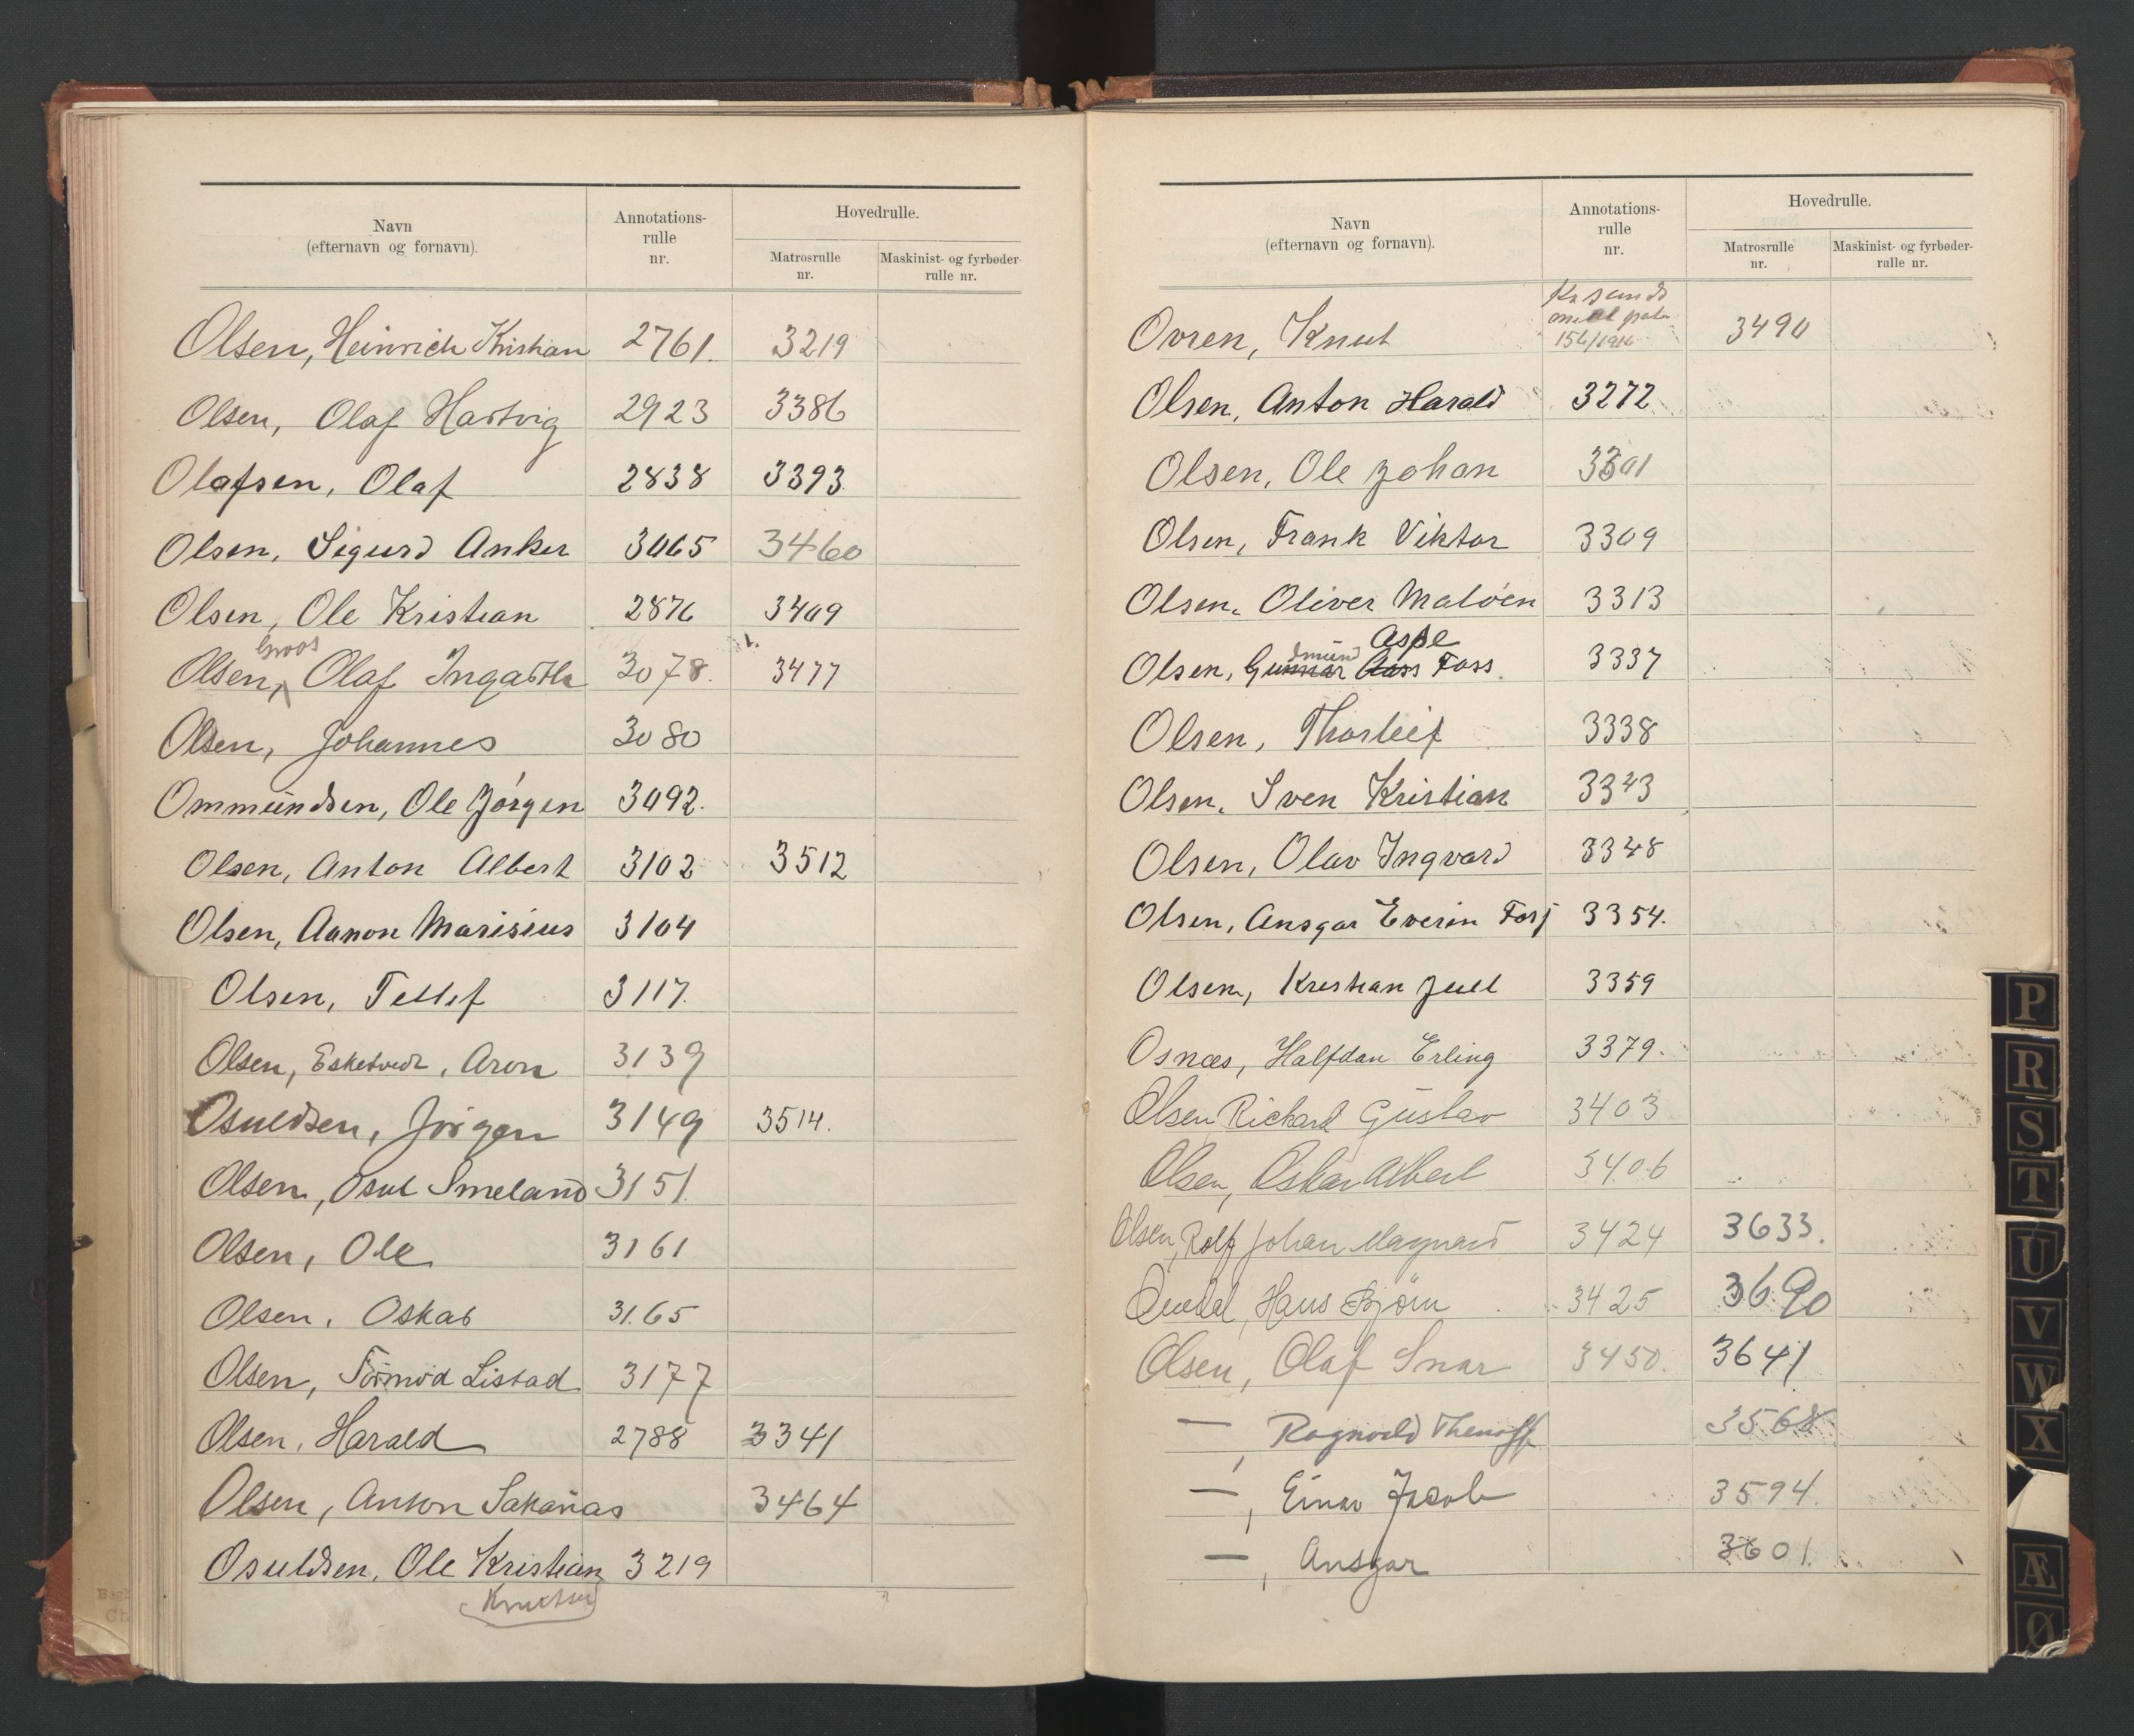 Navn
(efternavn og fornavn).
Annotations-
rulle
nr.
Hovedrulle.
Matrosrulle
nr.
Maskinist- og fyrbøder-
rulle nr.
Olsen, Heinrich Kristian 2761. 3219
Olsen, Olaf Hartvig 2923 3386
Olafsen, Olaf 2838 3393
Olsen, Sigurd Anker 3065 3460
Olsen, Ole Kristian 2876 3409
Groos
Olsen, Olaf 3078. 3477
Olsen, Johannes 3080
Ommundsen, Ole Jórgen 3092.
Olsen, Anton Albert 3102 3512
Olsen, Aanon Marisius 3104
Olsen, Tellef 3117.
Olsen, Aron 3139
Osuldsen, Jörgen 3149 3514.
Olsen, Osul Smeland 3151.
Olsen, Ole 3161
Olsen, Oskar 3165
Olsen, Tormod Listad 3177
Olsen, Harald 2788 3341
Olsen, Anton Sakarias 3464
Osuldsen, Ole Kristian 3219
Knutsen
Navn
(efternavn og fornavn).
Annotations-
rulle
nr.
Hovedrulle.
Matrosrulle
nr.
Maskinist- og fyrbøder-
rulle nr.
Ovren, Knut 3490
Olsen, Anton Harald 3272
Olsen, Ole Johan 3301
Olsen, Frank Viktor 3309
Olsen, Oliver Malvin 3313
dmund Aspe
Olsen, Gunnar Aass Foss. 3337
Olsen, Thorleif 3338
Olsen, Sven Kristian 3343
Olsen, Olav Ingvard 3348
Olsen, Ansgar Everin 3354.
Olsen, Kristian Juell 3359
Osnæs, Halfdan Erling 3379.
Olsen Richard Gustav 3403
Olsen, Oskar Albert 3406
Olsen, Rolf Johan Magnard 3424 3633.
Hans Bjöin 3425 3690
Olsen, Olaf Snar 3450. 3641
—, Ragnvald 3568
—, Einar Jacob 3594.
—, Ansgar 3601.
P
R
S
T
U
V
W
X
Æ
Ø